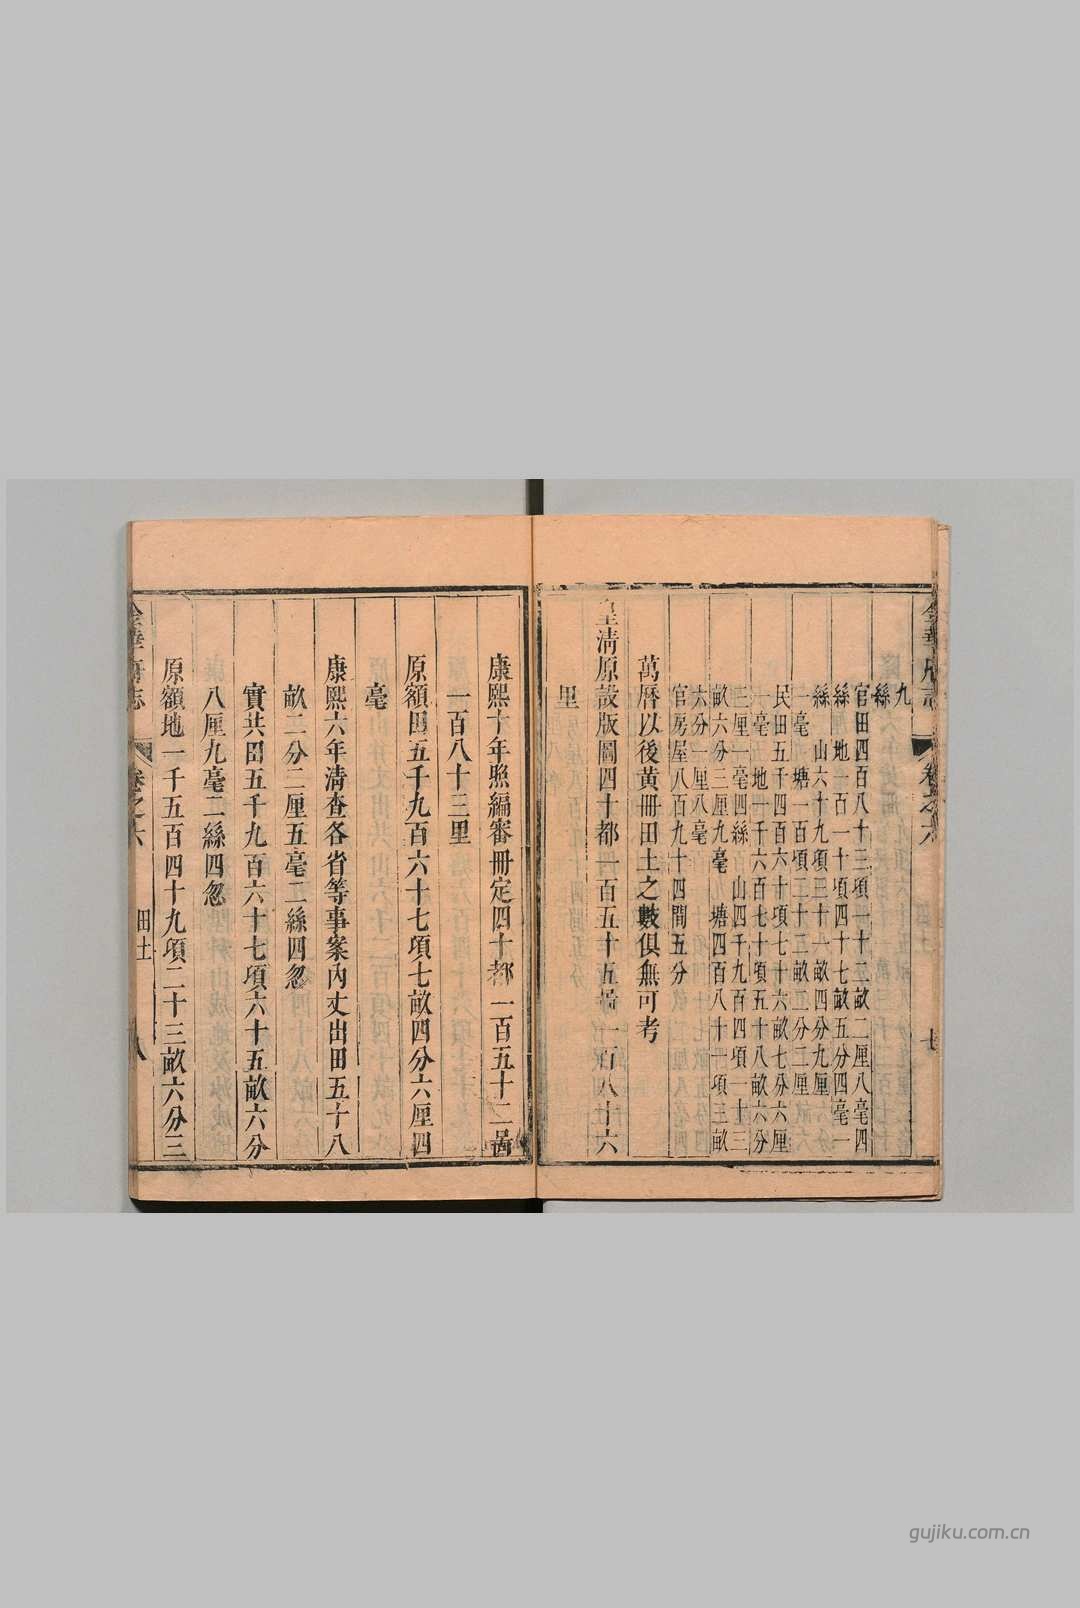 金華府志
卷之六
七
九
絲
官田四百八十三項一十五畝二厘八毫四
絲 地一百一十項四十七畝五分四毫一
絲 山六十九項三十一畝四分九厘
一毫 塘一百項三十五畝五分二厘
民田五千四百六十項七十六畝七分六厘
一毫 地一千六百七十項五十八畝六分
三厘一毫四絲 山四千九百四項一十三
畝六分三厘九毫 塘四百八十一項三畝
六分一厘八毫
官房屋八百九十四間五分
萬曆以後黃冊田土之數俱無可考
皇清原設版圖四十都一百五十五啚一百八十六
里
康熙十年照編審冊定四十都一百五十二啚
一百八十三里
原額田五千九百六十七項七畝四分六厘四
毫
康熙六年清查各省等事案內丈出田五十八
畝二分二厘五毫二絲四忽
實共田五千九百六十七項六十五畝六分
八厘九毫二絲四忽
原額地一千五百四十九項二十三畝六分三
金華府志
卷之六
田土
八
gujiku.com.cn